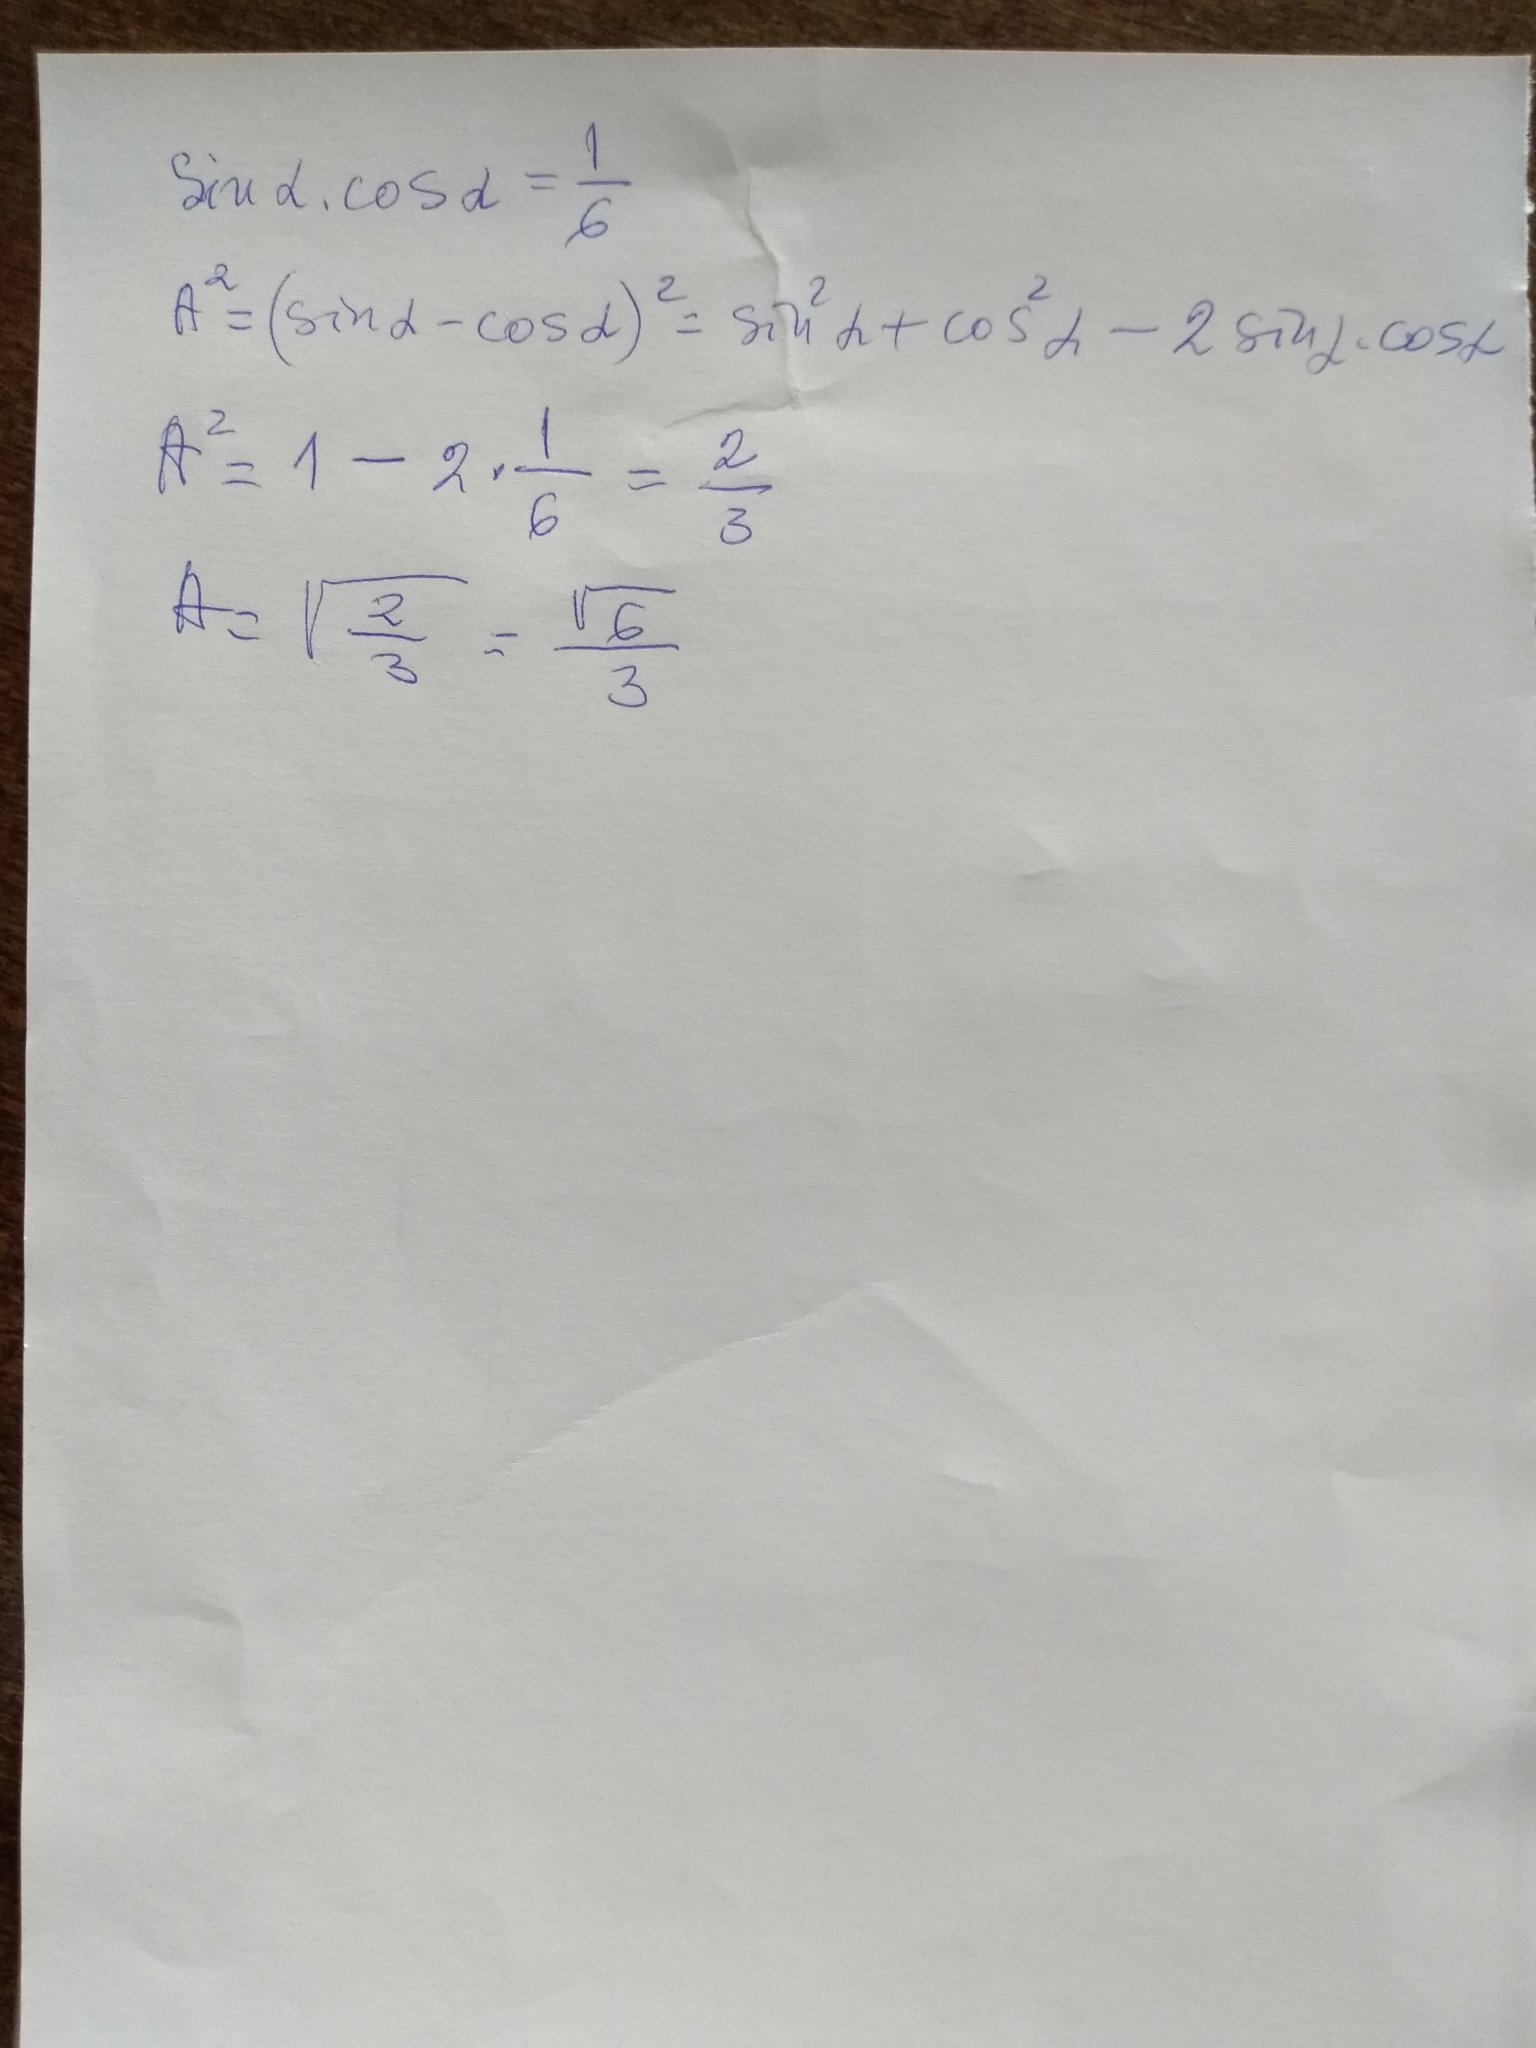 sin α . cos α = 1/6
A² = (sin α - cos α)² = sin² α + cos² α - 2 sin α . cos α
A² = 1 - 2 . 1/6 = 2/3
A = √(2/3) = √6/3